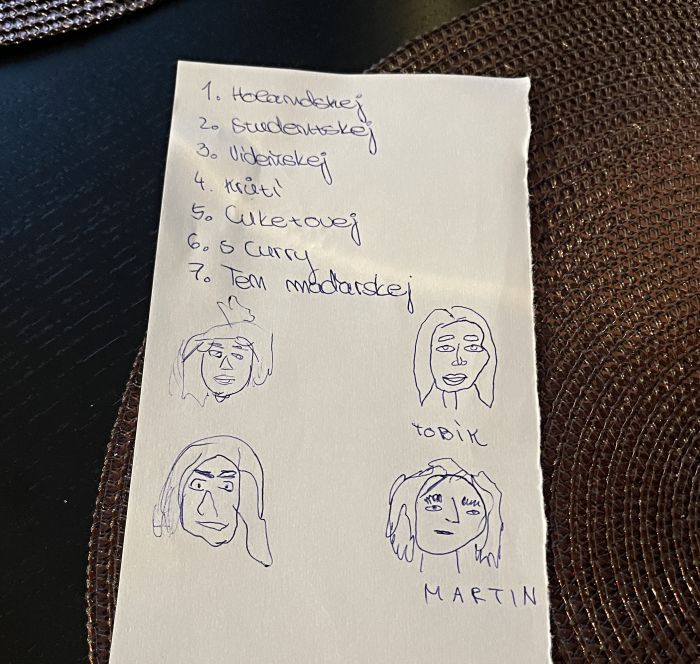 1. Holandskej
2. Studentskej
3. Vídeňskej
4. Krůtí
5. Cuketovej
6. s curry
7. Ten maďarskej
TOBIK
MARTIN